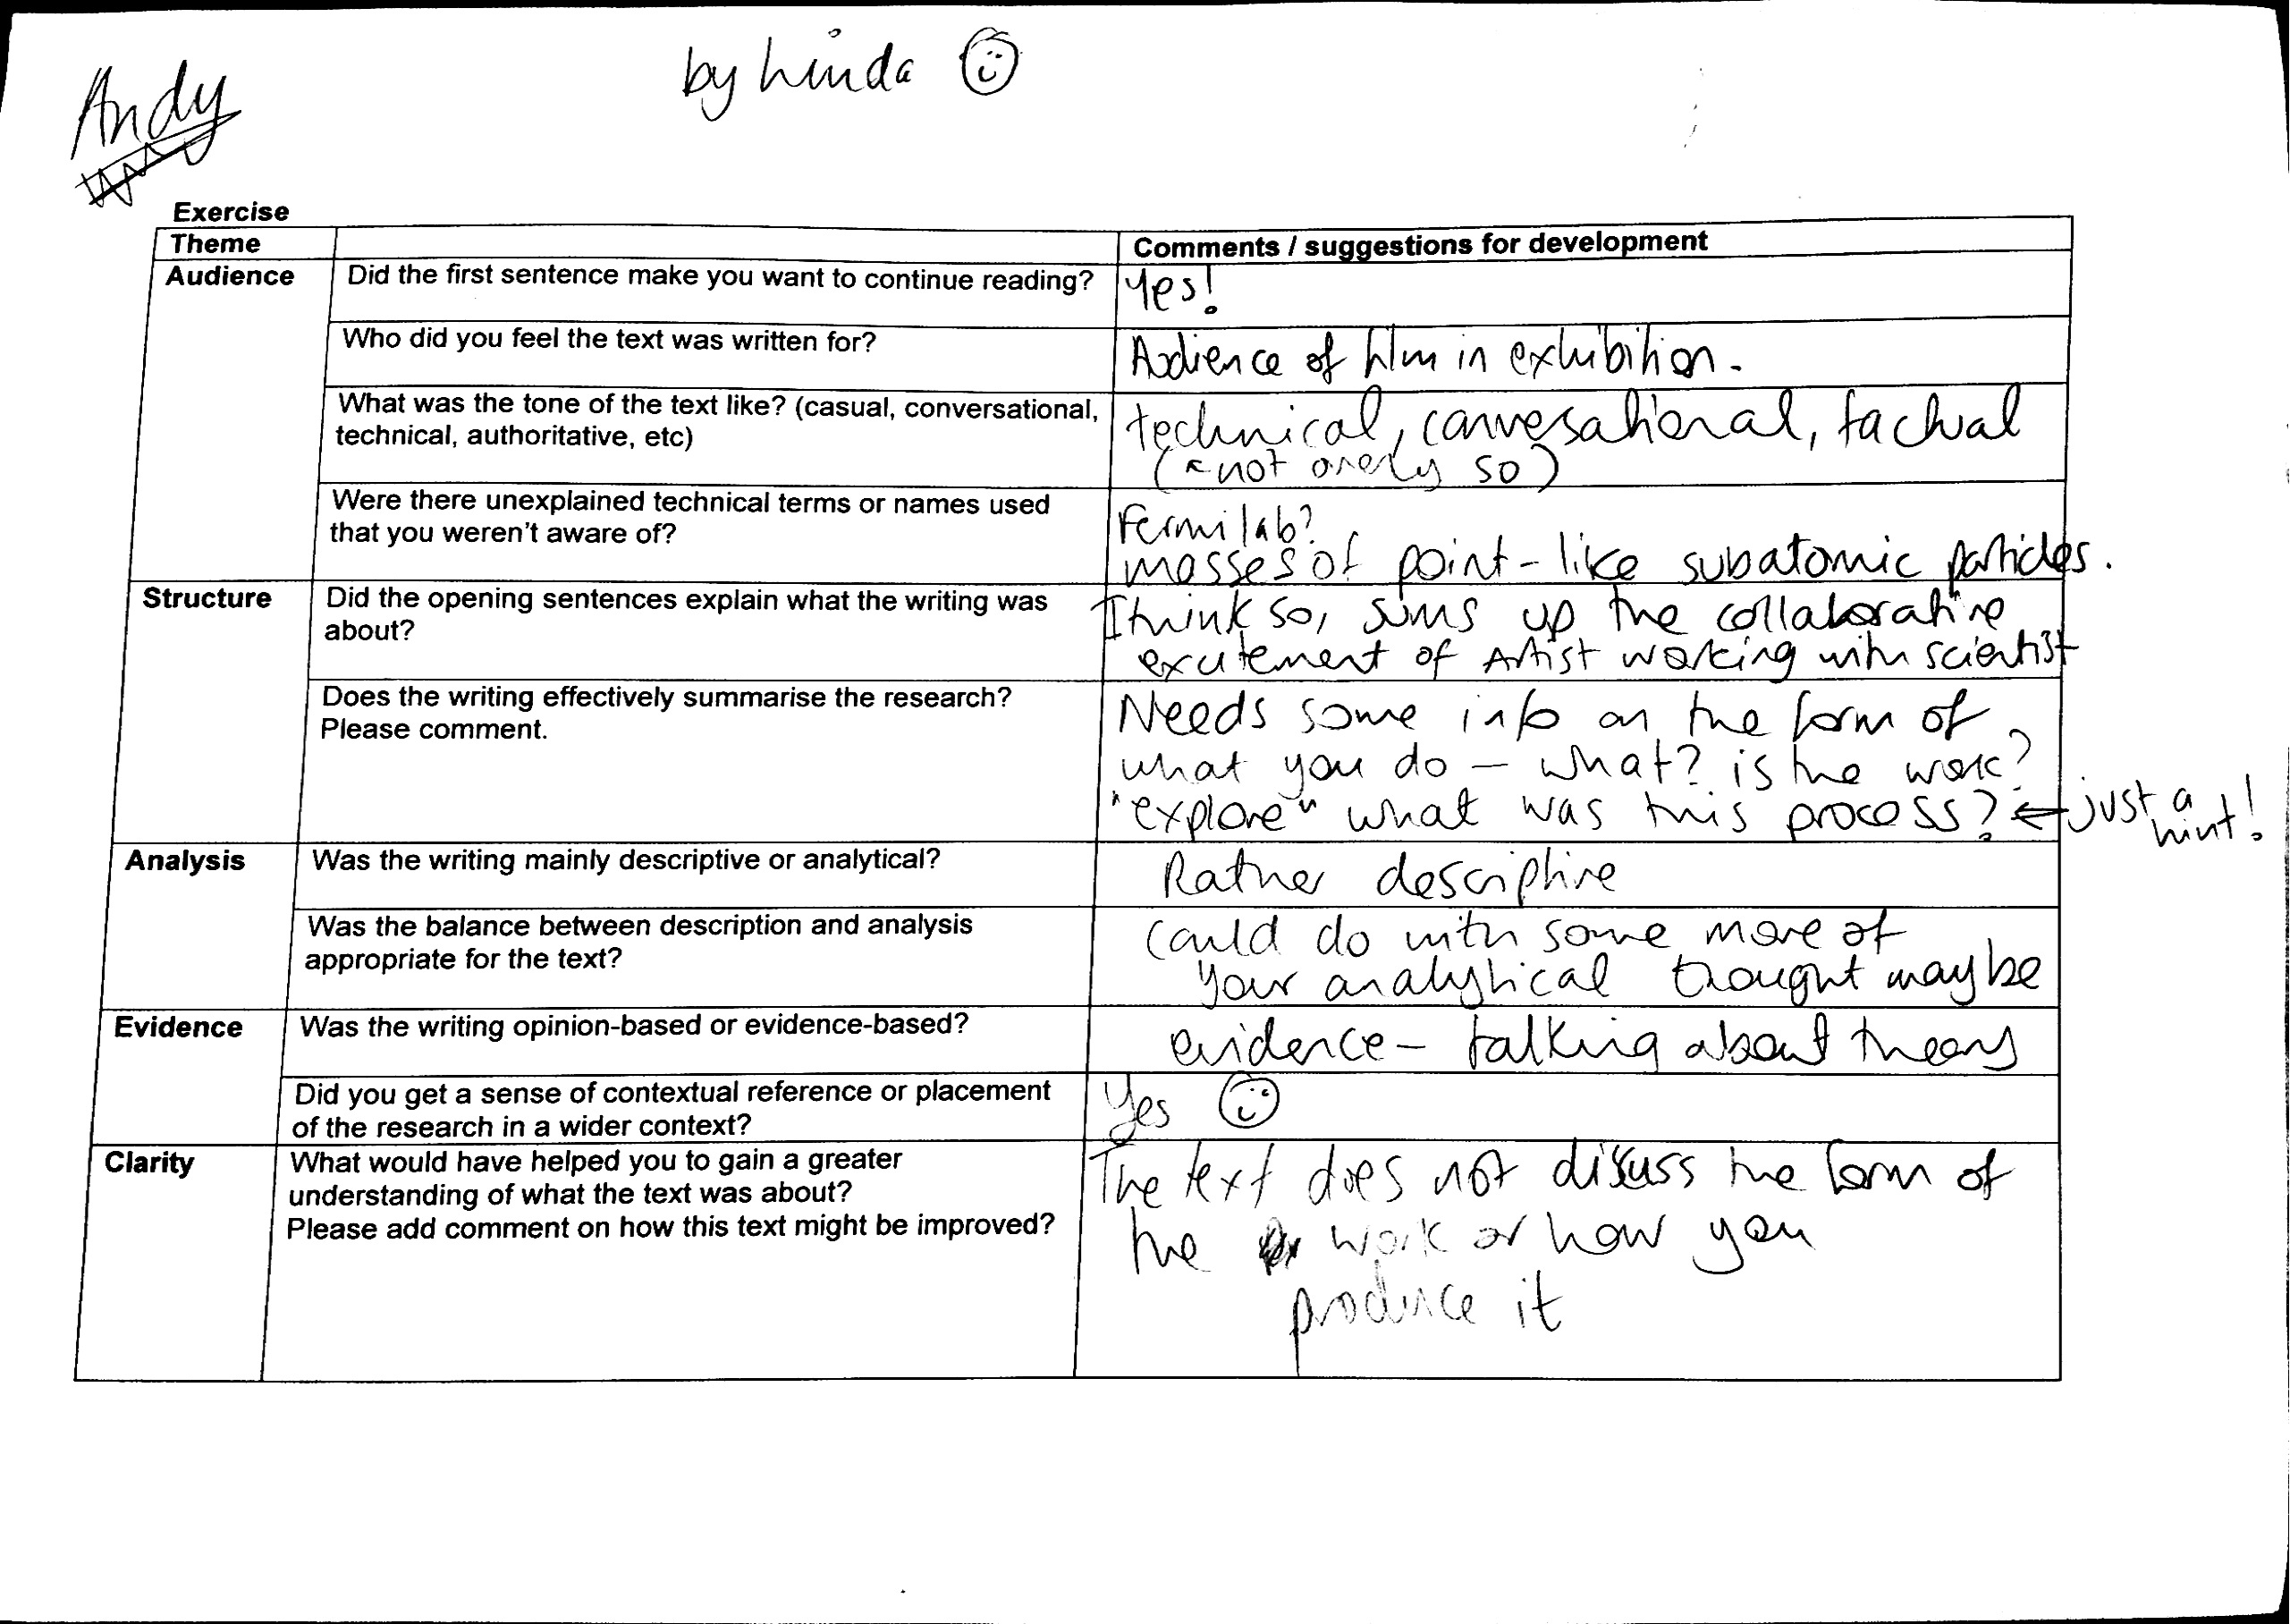 Andy
by Linda
Exercise
Theme
Comments / suggestions for development
Audience
Did the first sentence make you want to continue reading?
Yes!
Who did you feel the text was written for?
Audience of film in exhibition.
What was the tone of the text like? (casual, conversational,
technical, authoritative, etc)
technical, conversational, factual
(not overly so)
Were there unexplained technical terms or names used
that you weren't aware of?
Fermilab?
masses of point-like subatomic particles.
Structure
Did the opening sentences explain what the writing was
about?
I think so, sums up the collaborative
excitement of Artist working with scientist
Does the writing effectively summarise the research?
Please comment.
Needs some info on the form of
what you do – what? is the work?
"explore" what was this process? ← just a
hint!
Analysis
Was the writing mainly descriptive or analytical?
Rather descriptive
Was the balance between description and analysis
appropriate for the text?
Could do with some more of
your analytical thought maybe
Evidence
Was the writing opinion-based or evidence-based?
evidence – talking about theory
Did you get a sense of contextual reference or placement
of the research in a wider context?
Yes
Clarity
What would have helped you to gain a greater
understanding of what the text was about?
Please add comment on how this text might be improved?
The text does not discuss the form of
the work or how you
produce it